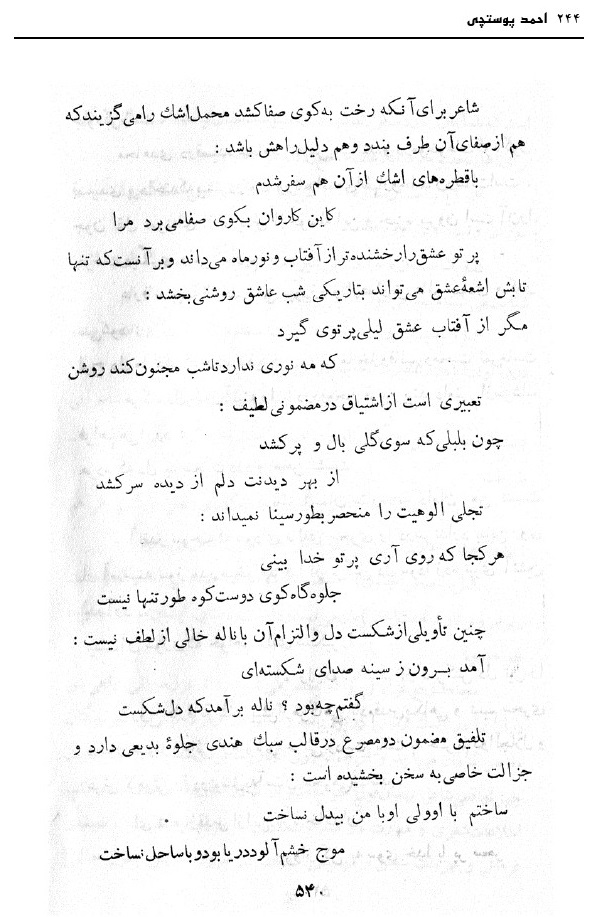 ۲۴۴ احمد پوستچی
شاعر برای آنکه رخت به کوی صفا کشد محمل اشك را می‌گزیند که
هم از صفای آن طرف بندد و هم دلیل راهش باشد :
با قطره‌های اشك از آن هم سفر شدم
کاین کاروان بکوی صفا می‌برد مرا
پرتو عشق را رخشنده‌تر از آفتاب و نور ماه می‌داند و بر آنست که تنها
تابش اشعهٔ عشق می‌تواند بتاریکی شب عاشق روشنی بخشد :
مگر از آفتاب عشق لیلی پرتوی گیرد
که مه نوری ندارد تا شب مجنون کند روشن
تعبیری است از اشتیاق در مضمونی لطیف :
چون بلبلی که سوی گلی بال و پر کشد
از بهر دیدنت دلم از دیده سر کشد
تجلی الوهیت را منحصر بطور سینا نمیداند :
هر کجا که روی آری پرتو خدا بینی
جلوه گاه کوی دوست کوه طور تنها نیست
چنین تأویلی از شکست دل و التزام آن با ناله خالی از لطف نیست :
آمد برون ز سینه صدای شکسته‌ای
گفتم چه بود ؟ ناله بر آمد که دل شکست
تلفیق مضمون دو مصرع در قالب سبك هندی جلوهٔ بدیعی دارد و
جزالت خاصی به سخن بخشیده است :
ساختم با او ولی او با من بیدل نساخت
موج خشم آلود دریا بود و با ساحل نساخت
۵۴۰